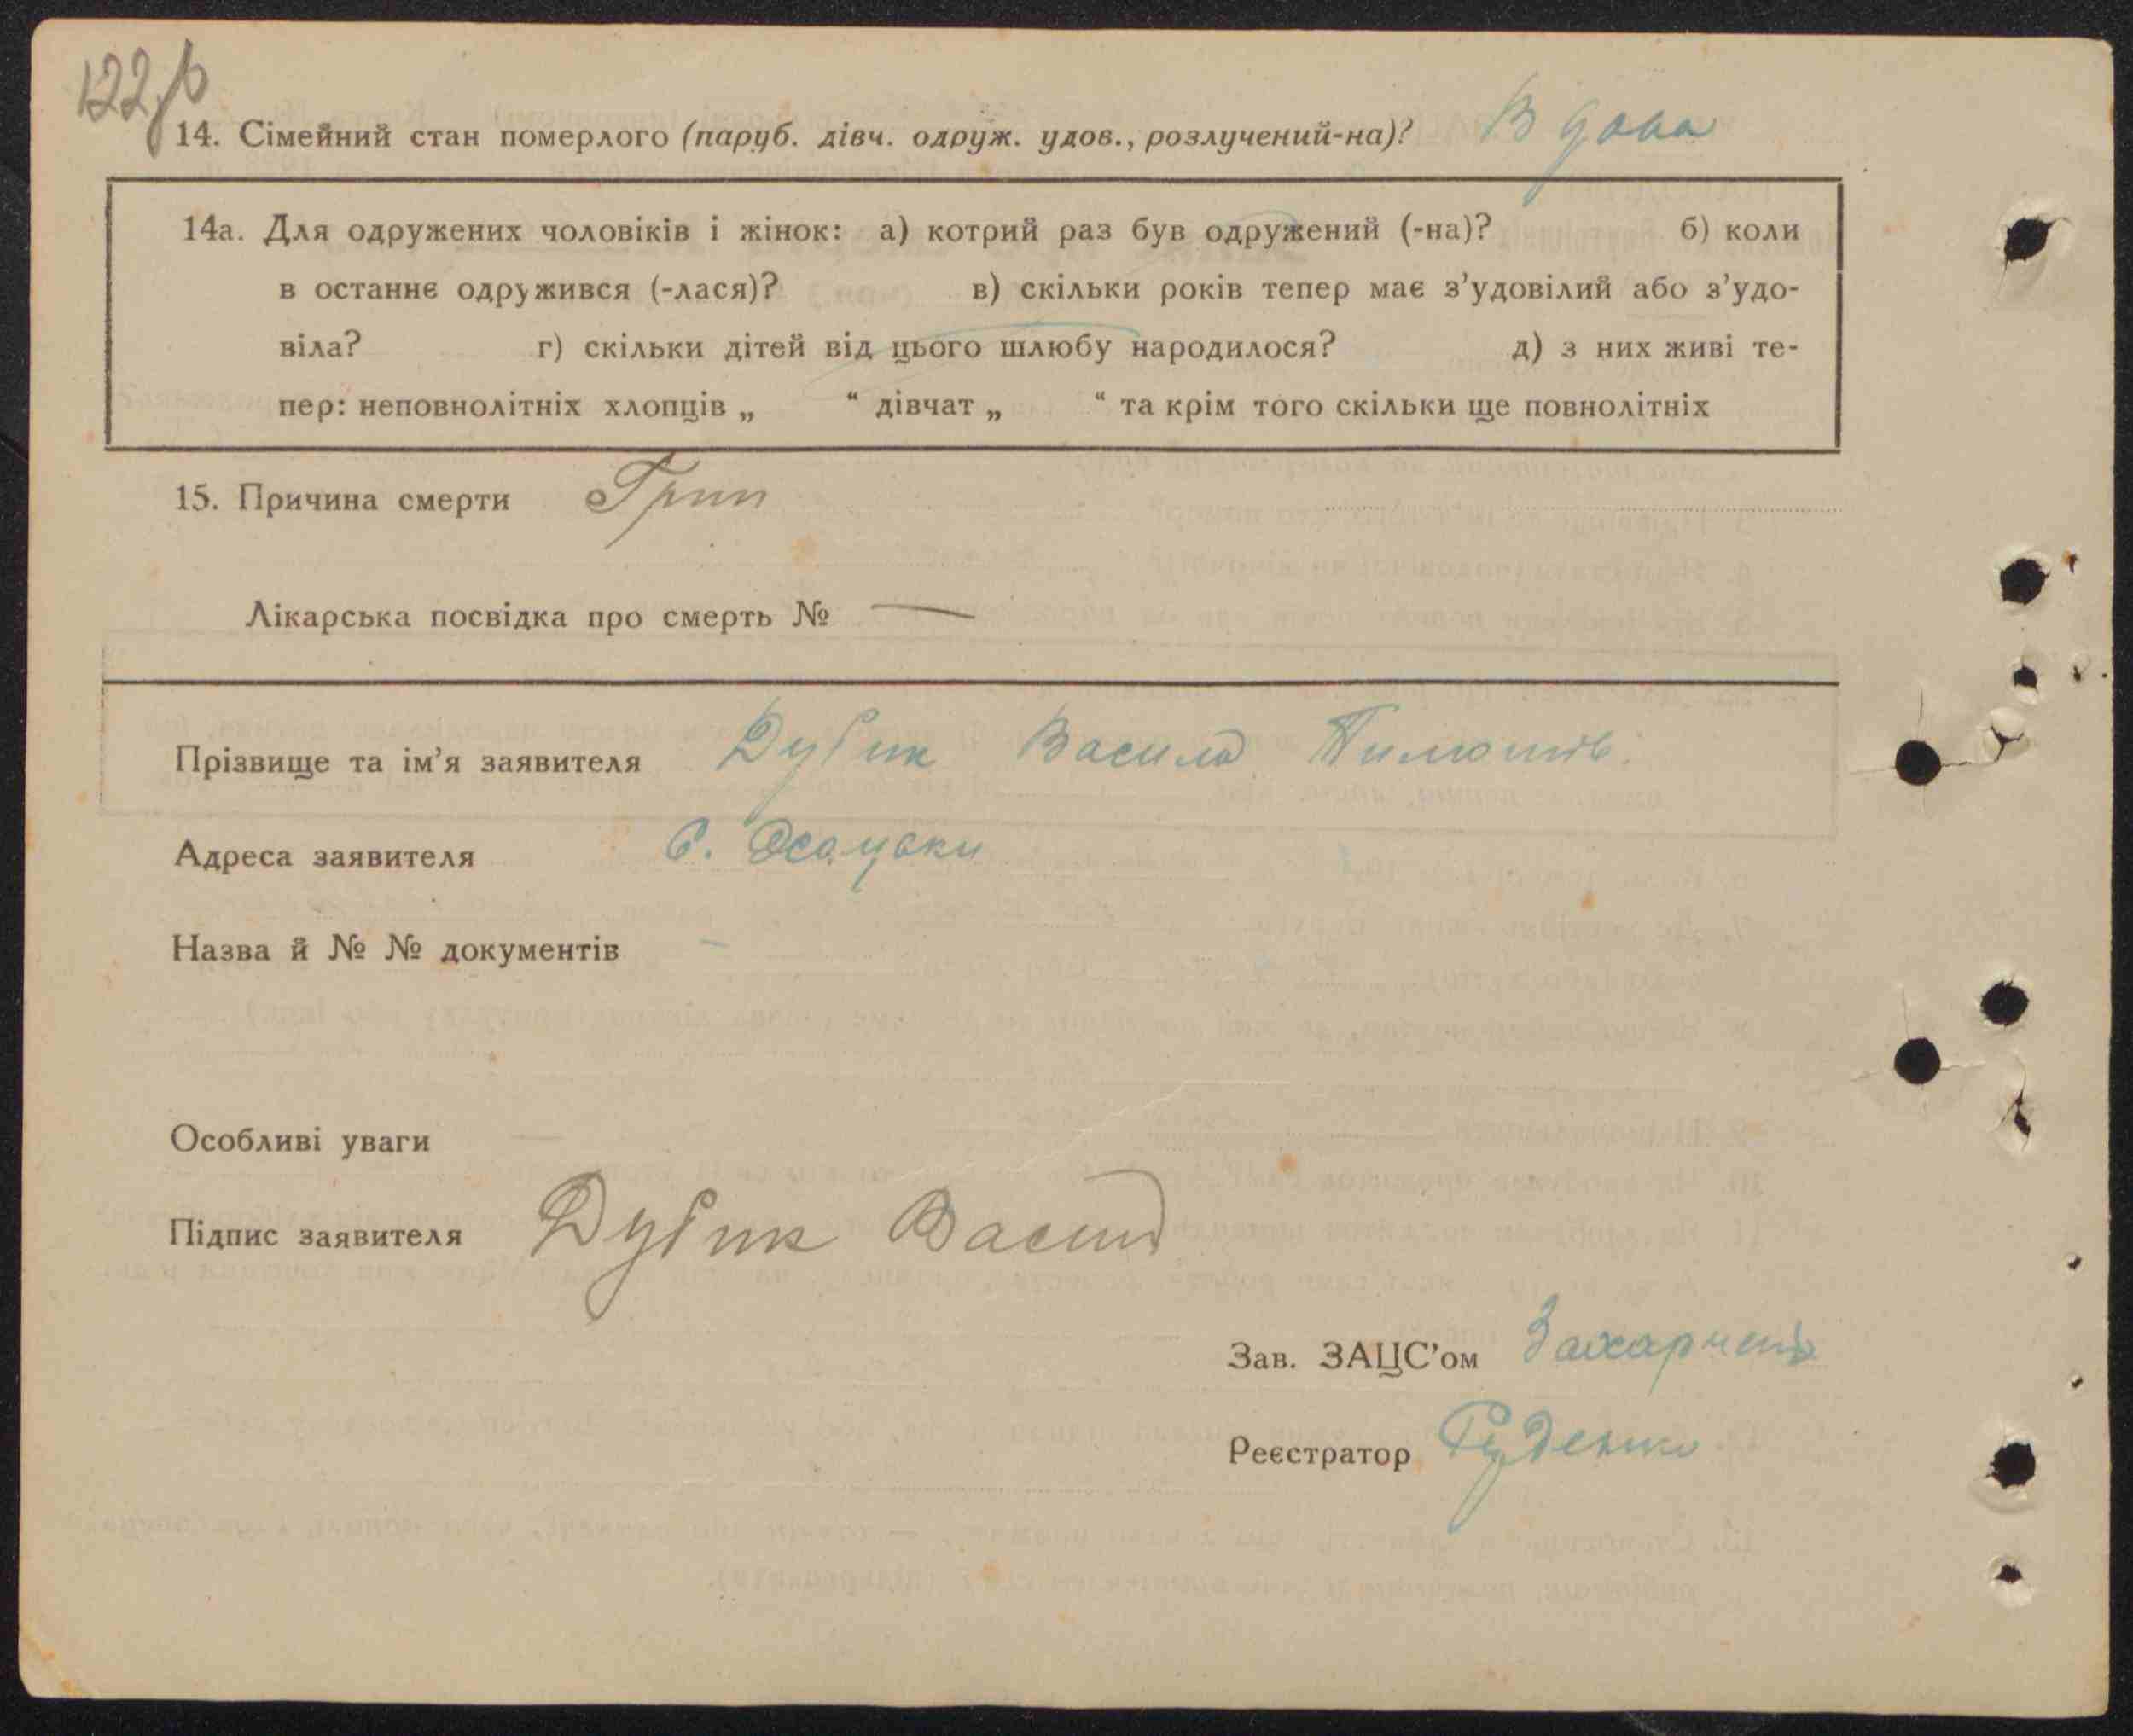 14. Сімейний стан померлого (паруб. дівч. одруж. удов., розлучений-на)? Вдова
14а. Для одружених чоловіків і жінок: а) котрий раз був одружений (-на)? б) коли
в останнє одружився (-лася)? в) скільки років тепер має з'удовілий або з'удо-
віла? г) скільки дітей від цього шлюбу народилося? д) з них живі те-
пер: неповнолітніх хлопців „ “ дівчат „ “ та крім того скільки ще повнолітніх
15. Причина смерти Грип
Лікарська посвідка про смерть № —
Прізвище та ім'я заявителя Дубик Василь
Адреса заявителя с.
Назва й № № документів –
Особливі уваги —
Підпис заявителя Дубик Васил
Зав. ЗАЦС'ом
Реєстратор Руденко